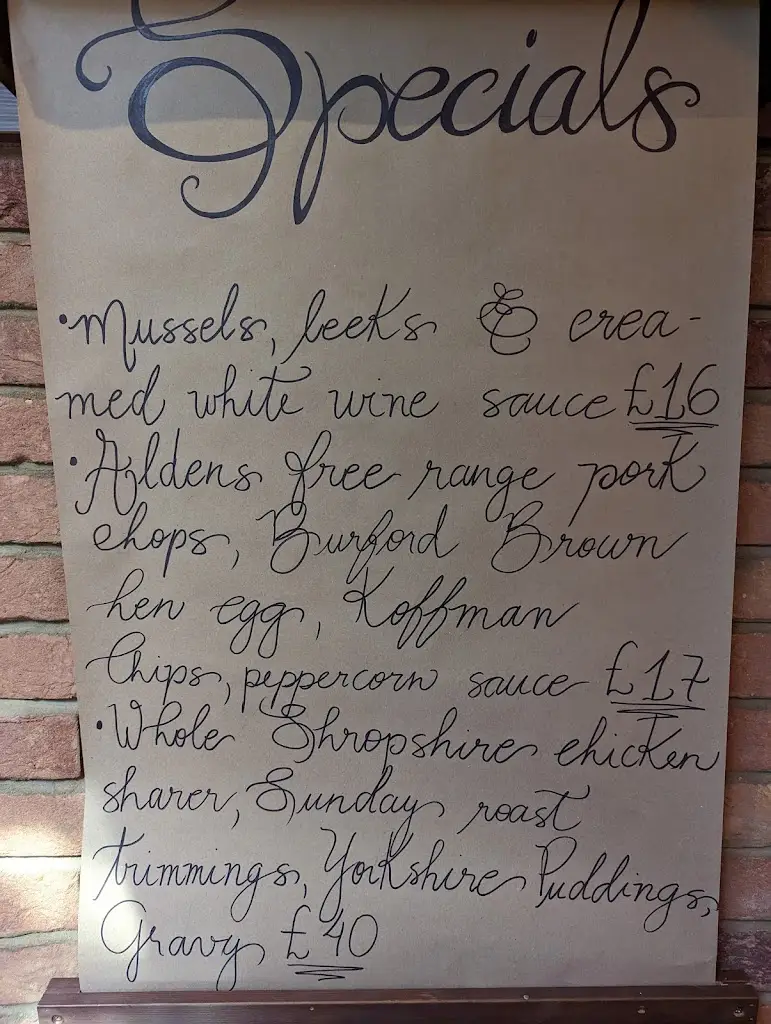 Specials
•Mussels, leeks & crea-
med white wine sauce £16
•Aldens free range pork
chops, Burford Brown
hen egg, Koffman
Chips, peppercorn sauce £17
•Whole Shropshire chicken
sharer, Sunday roast
trimmings, Yorkshire Puddings,
Gravy £40